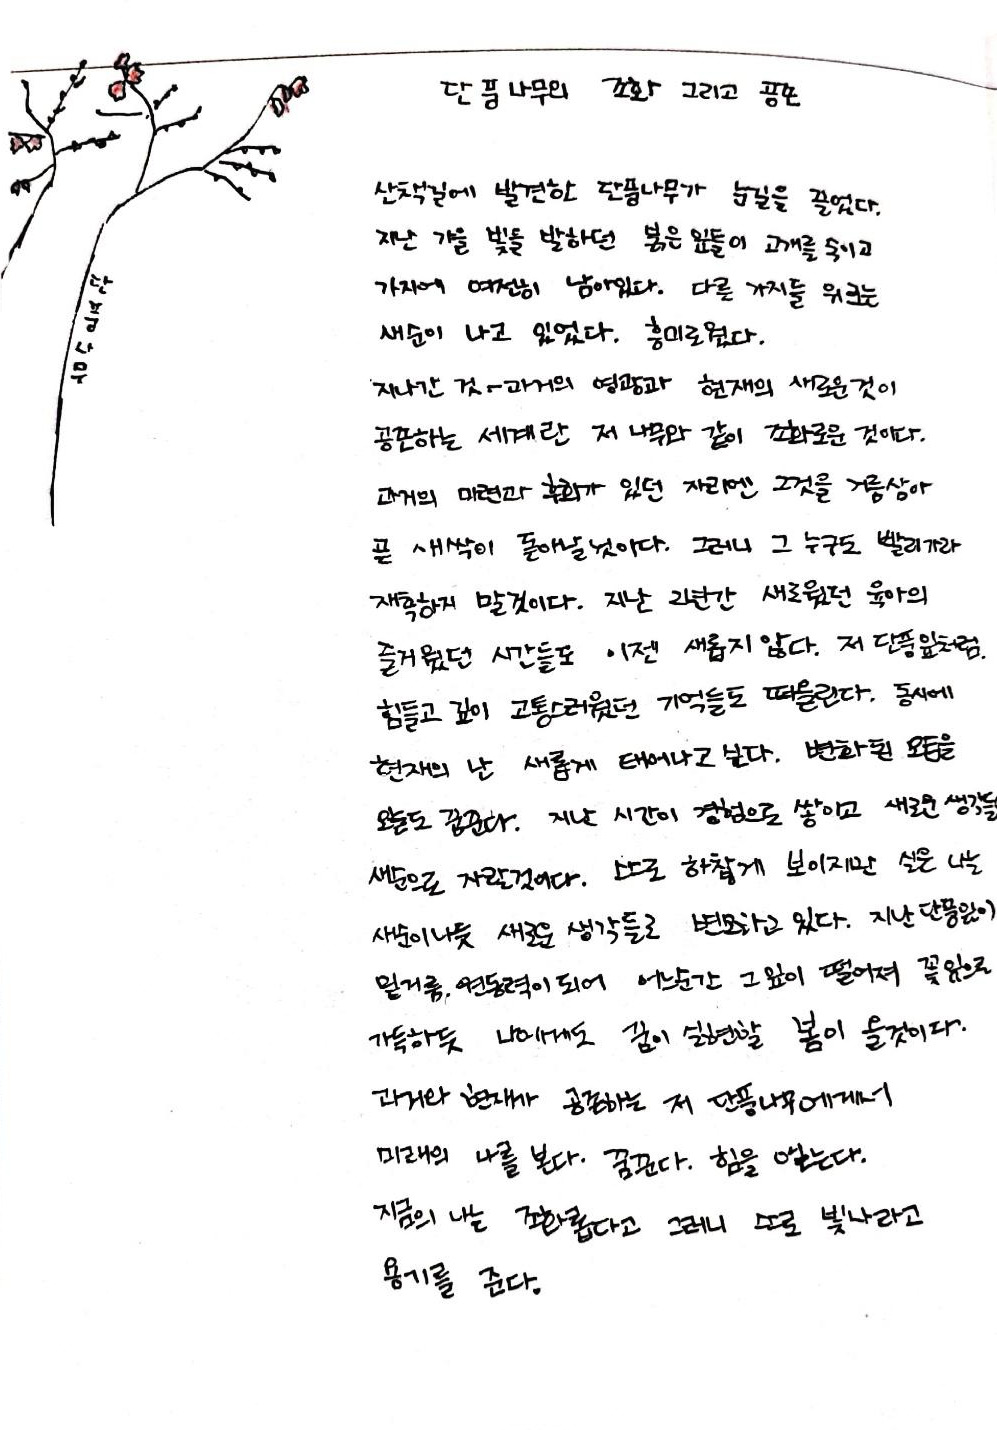 단풍나무의 조화 그리고 공존
산책길에 발견한 단풍나무가 눈길을 끌었다.
지난 가을 빛을 발하던 붉은 잎들이 고개를 숙이고
가지에 여전히 남아있다. 다른 가지들 위로는
새순이 나고 있었다. 흥미로웠다.
지나간 것-과거의 영광과 현재의 새로운것이
공존하는 세계란 저 나무와 같이 조화로운 것이다.
과거의 미련과 후회가 있던 자리엔 그것을 거름삼아
푿 새싹이 돋아날것이다. 그러니 그 누구도 빨리가라
재촉하지 말것이다. 지난 2년간 새로웠던 육아의
즐거웠던 시간들도 이젠 새롭지않다. 저 단풍잎처럼.
힘들고 깊이 고통스러웠던 기억들도 떠올린다. 동시에
현재의 난 새롭게 태어나고 싶다. 변화된 모습을
오늘도 꿈꾼다. 지난 시간이 경험으로 쌓이고 새로운 생각들
새순으로 자랄것이다. 스스로 하찮게 보이지만 실은 나는
새순이나듯 새로운 생각들로 변모하고 있다. 지난 단풍잎이
밑거름, 원동력이 되어 어느순간 그 잎이 떨어져 꽃잎으로
가득하듯 나에게도 꿈이 실현할 봄이 올것이다.
과거와 현재가 공존하는 저 단풍나무에게서
미래의 나를 본다. 꿈꾼다. 힘을 얻는다.
지금의 나는 조화롭다고 그러니 스스로 빛나라고
용기를 준다.
단풍나무